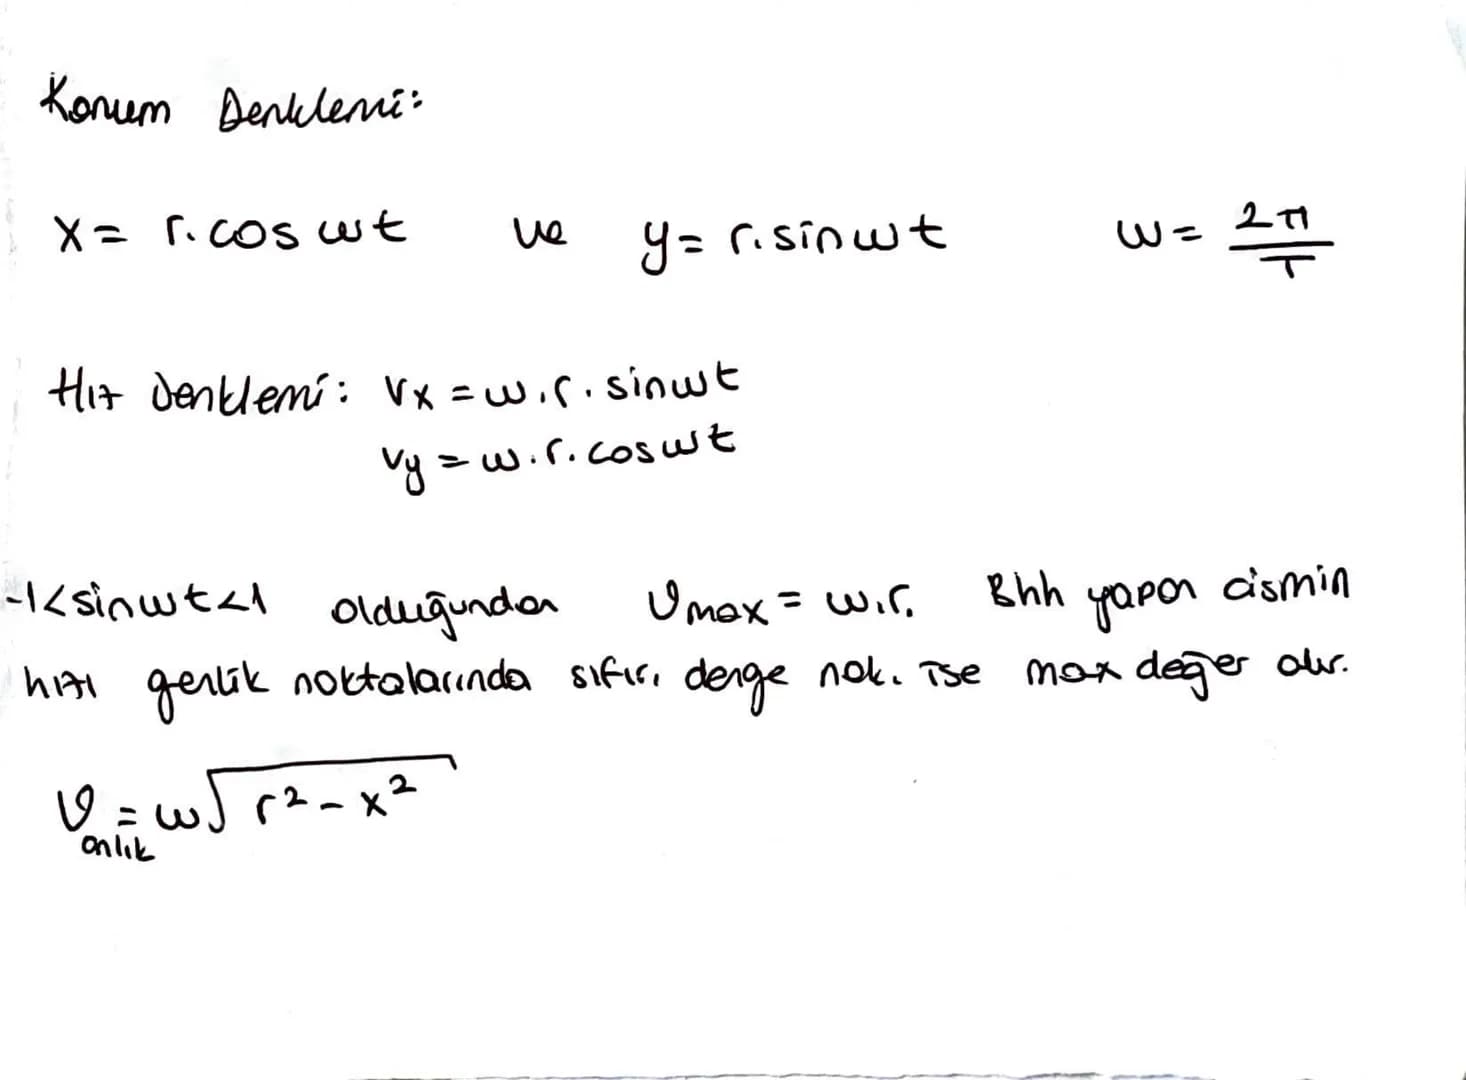 Konum Denklemi:
x = r. cos wt ve y = r. sin wt w = 2π/T
Hız denklemi: Vx = w. r. sin wt
Vy = w. r. cos wt
-1<sin wt<1 olduğundan Vmax = w.r. Bhh yapan cismin
hızı genlik noktalarında sıfır, denge nok. ise max değer alır.
V anlık = w√r² - x²